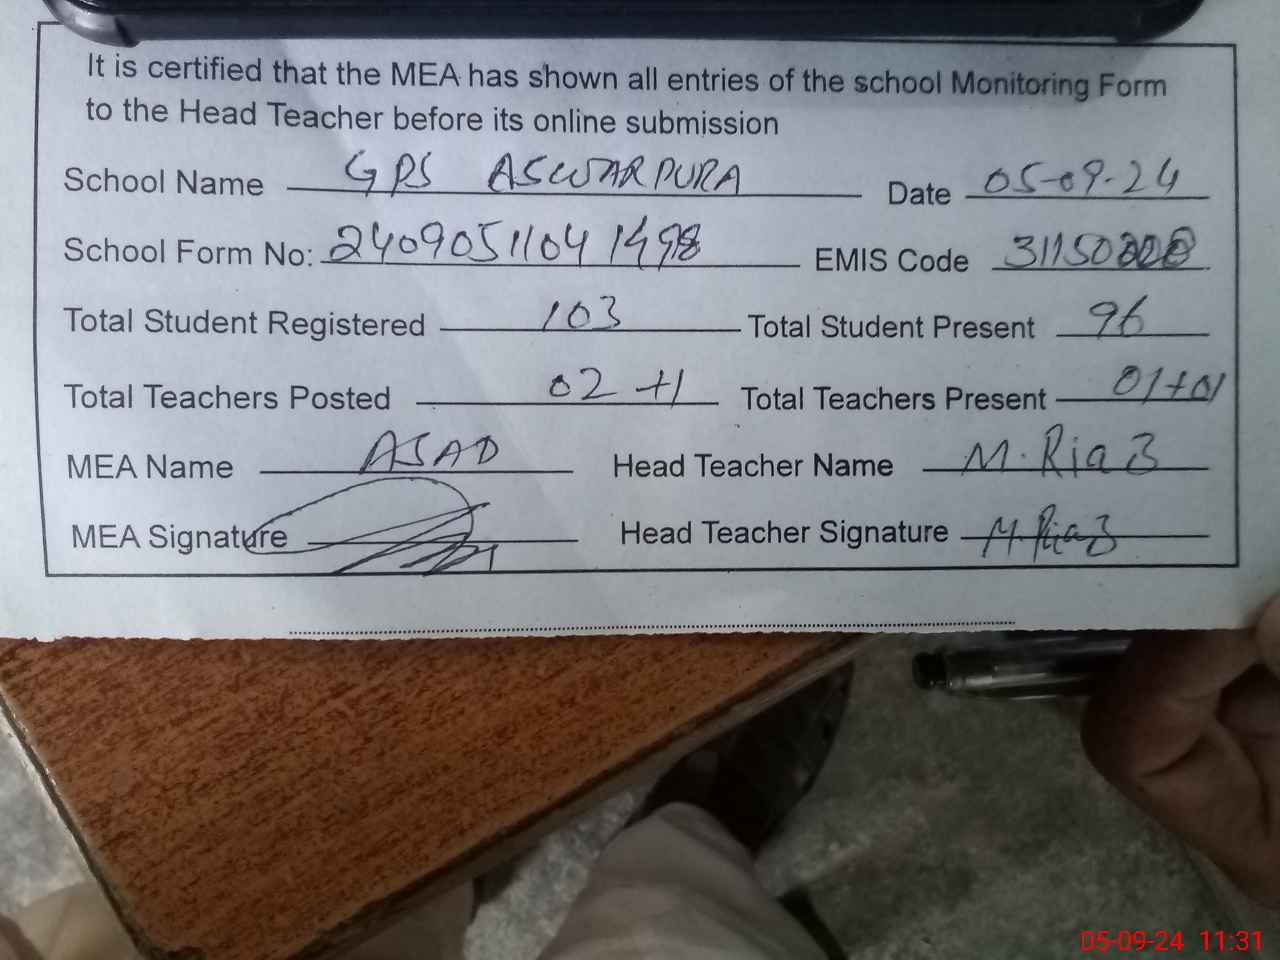 It is certified that the MEA has shown all entries of the school Monitoring Form
to the Head Teacher before its online submission
School Name GPS ASWARPURA Date 05-09-24
School Form No: 24090511041498 EMIS Code
Total Student Registered 103 Total Student Present 96
Total Teachers Posted 02 +1 Total Teachers Present 01+01
MEA Name ASAD Head Teacher Name M. Riaz
MEA Signature Head Teacher Signature M. Riaz
05-09-24 11:31